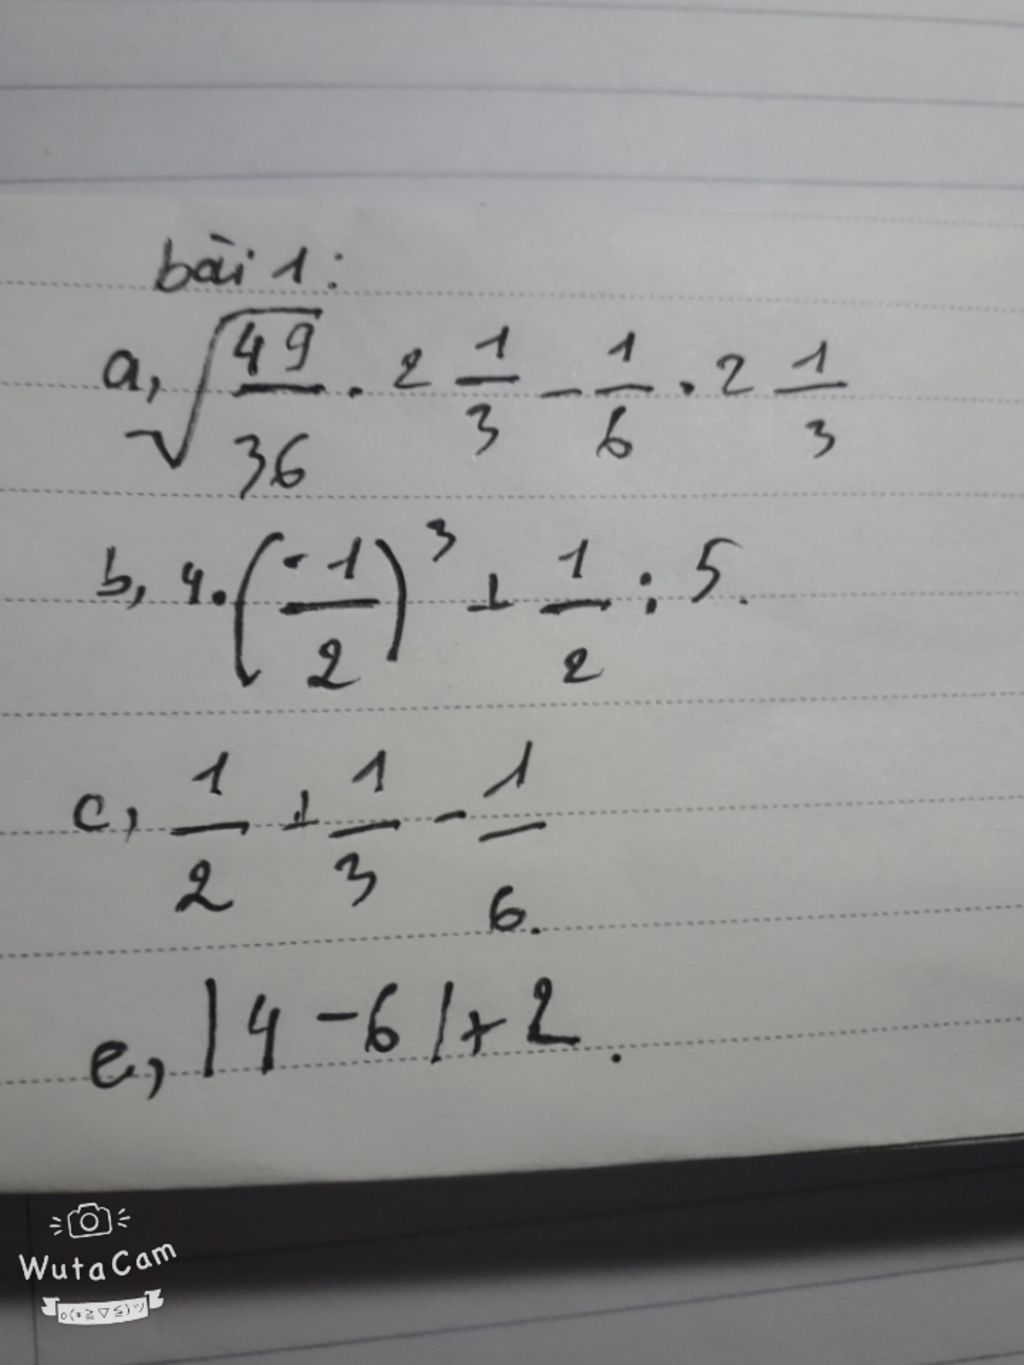 bài 1:
a, √(49/36) . 2 1/3 - 1/6 . 2 1/3
b, 4. (-1/2)³ + 1/2 : 5.
c, 1/2 + 1/3 - 1/6.
e, |4 - 6| + 2.
WutaCam
o(*≧▽≦)ツ